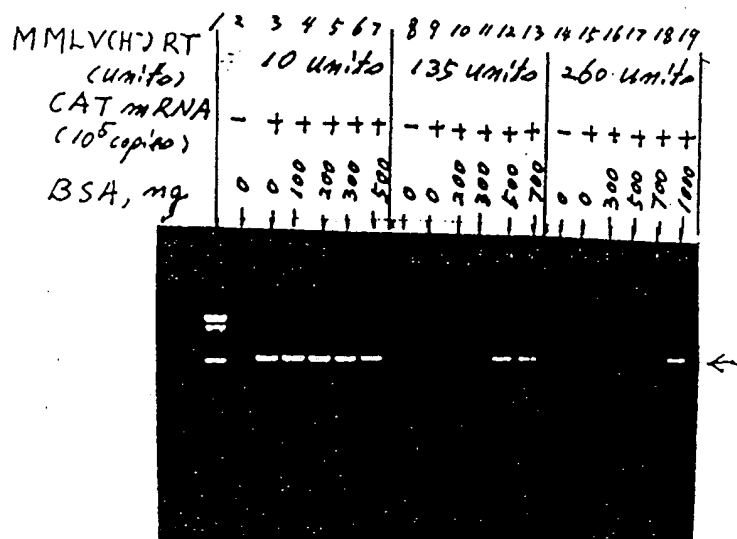 1 2 3 4 5 6 7 8 9 10 11 12 13 14 15 16 17 18 19
MMLV(H-) RT
(units) 10 units 135 units 260 units
CAT mRNA - + + + + + - + + + + + - + + + + +
(10^5 copies)
BSA, ng 0 0 100 200 300 500 0 0 200 300 500 700 0 0 300 500 700 1000
←